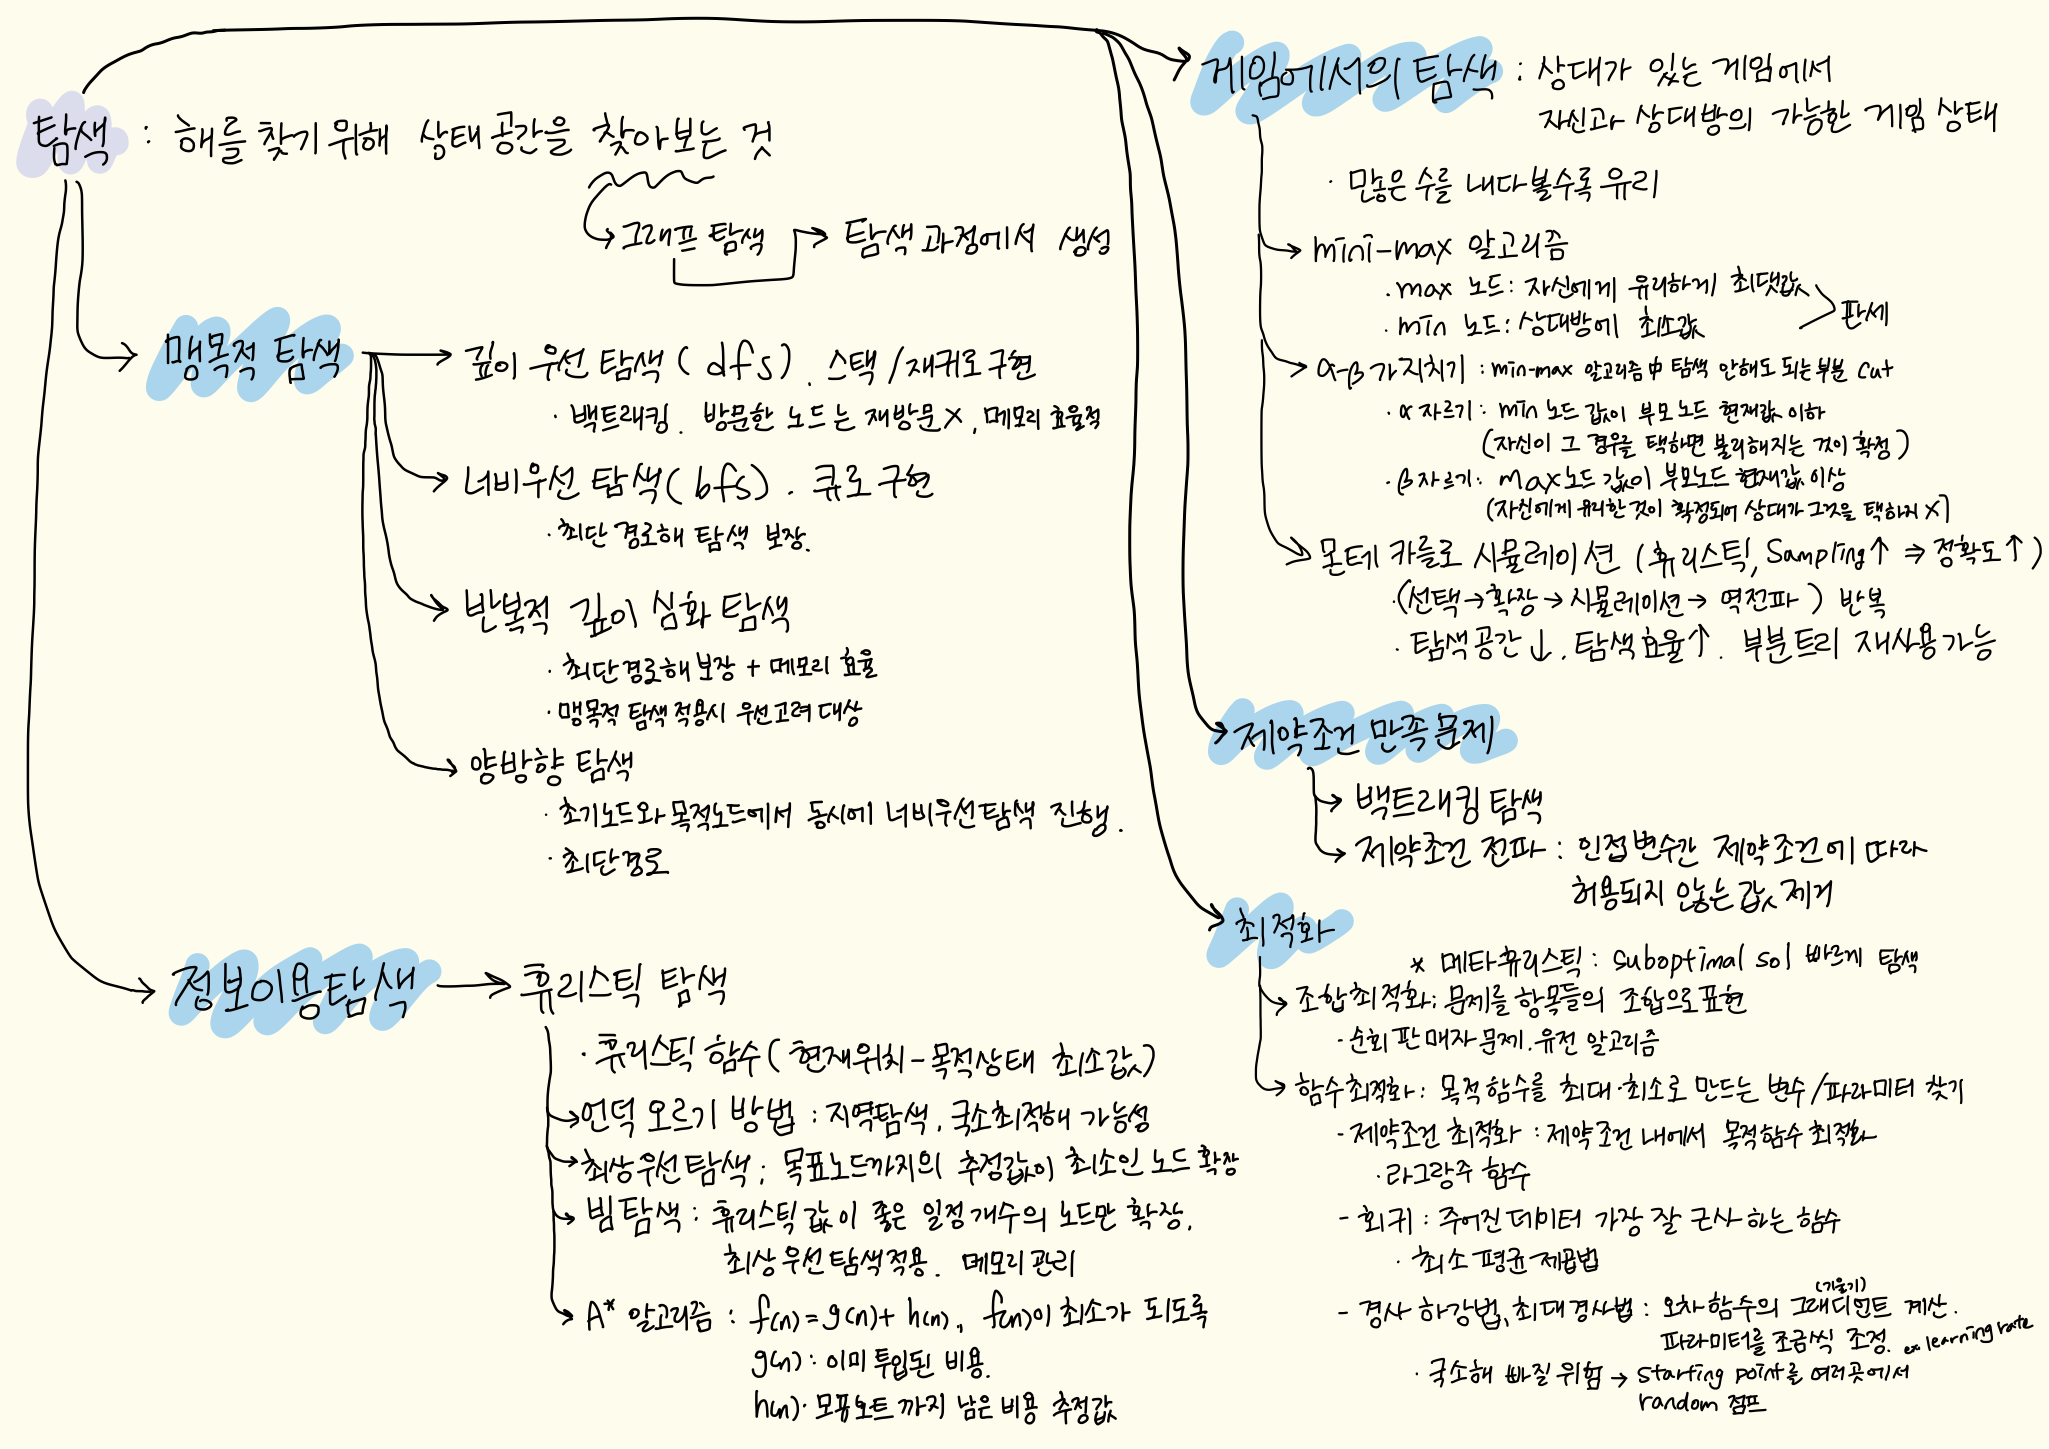 탐색 : 해를 찾기 위해 상태 공간을 찾아보는 것
그래프 탐색 → 탐색 과정에서 생성
맹목적 탐색
깊이 우선 탐색 (dfs). 스택/재귀로 구현
· 백트래킹. 방문한 노드는 재방문 X, 메모리 효율적
너비우선 탐색(bfs). 큐로 구현
· 최단 경로해 탐색 보장.
반복적 깊이 심화 탐색
· 최단경로해 보장 + 메모리 효율
· 맹목적 탐색 적용시 우선 고려 대상
양방향 탐색
· 초기노드와 목적노드에서 동시에 너비우선탐색 진행.
· 최단경로
정보이용탐색 → 휴리스틱 탐색
· 휴리스틱 함수 (현재위치-목적상태 최소값)
언덕 오르기 방법 : 지역탐색, 국소최적해 가능성
최상우선탐색 : 목표노드까지의 추정값이 최소인 노드 확장
빔탐색 : 휴리스틱 값이 좋은 일정 개수의 노드만 확장.
최상우선탐색 적용. 메모리 관리
A* 알고리즘 : f(n)=g(n)+h(n), f(n)이 최소가 되도록
g(n) : 이미 투입된 비용.
h(n)· 까지 남은 비용 추정값
게임에서의 탐색 : 상대가 있는 게임에서
자신과 상대방의 가능한 게임 상태
· 많은 수를 내다볼수록 유리
mini-max 알고리즘
· max 노드 : 자신에게 유리하게 최댓값
· min 노드 : 상대방에 최소값
판세
α-β 가지치기 : min-max 알고리즘中 탐색 안해도 되는 부분 cut
· α 자르기 : min 노드 값이 부모노드 현재값 이하
(자신이 그 경우를 택하면 불리해지는 것이 확정)
· β 자르기 : max노드 값이 부모노드 현재값 이상
(자신에게 유리한 것이 확정되어 상대가 그것을 택하지 X)
몬테 카를로 시뮬레이션 (휴리스틱, Sampling↑ ⇒ 정확도↑)
·(선택→확장→시뮬레이션→ 역전파) 반복
· 탐색공간↓. 탐색효율↑. 부분트리 재사용 가능
제약조건 만족문제
백트래킹 탐색
제약조건 전파 : 인접 변수간 제약조건에 따라
허용되지 않는 값 제거
최적화
* 메타휴리스틱 : suboptimal sol 빠르게 탐색
조합최적화 : 문제를 항목들의 조합으로 표현
- 순회 판매자 문제. 유전 알고리즘
함수최적화 : 목적함수를 최대·최소로 만드는 변수/파라미터 찾기
- 제약조건 최적화 : 제약조건 내에서 목적함수 최적화
· 라그랑주 함수
- 회귀 : 주어진 데이터 가장 잘 근사 하는 함수
· 최소 평균 제곱법
(기울기)
- 경사 하강법, 최대경사법 : 오차함수의 그래디언트 계산.
파라미터를 조금씩 조정. ex learning rate
· 국소해 빠질 위험 → starting point를 여러곳에서
random 점프